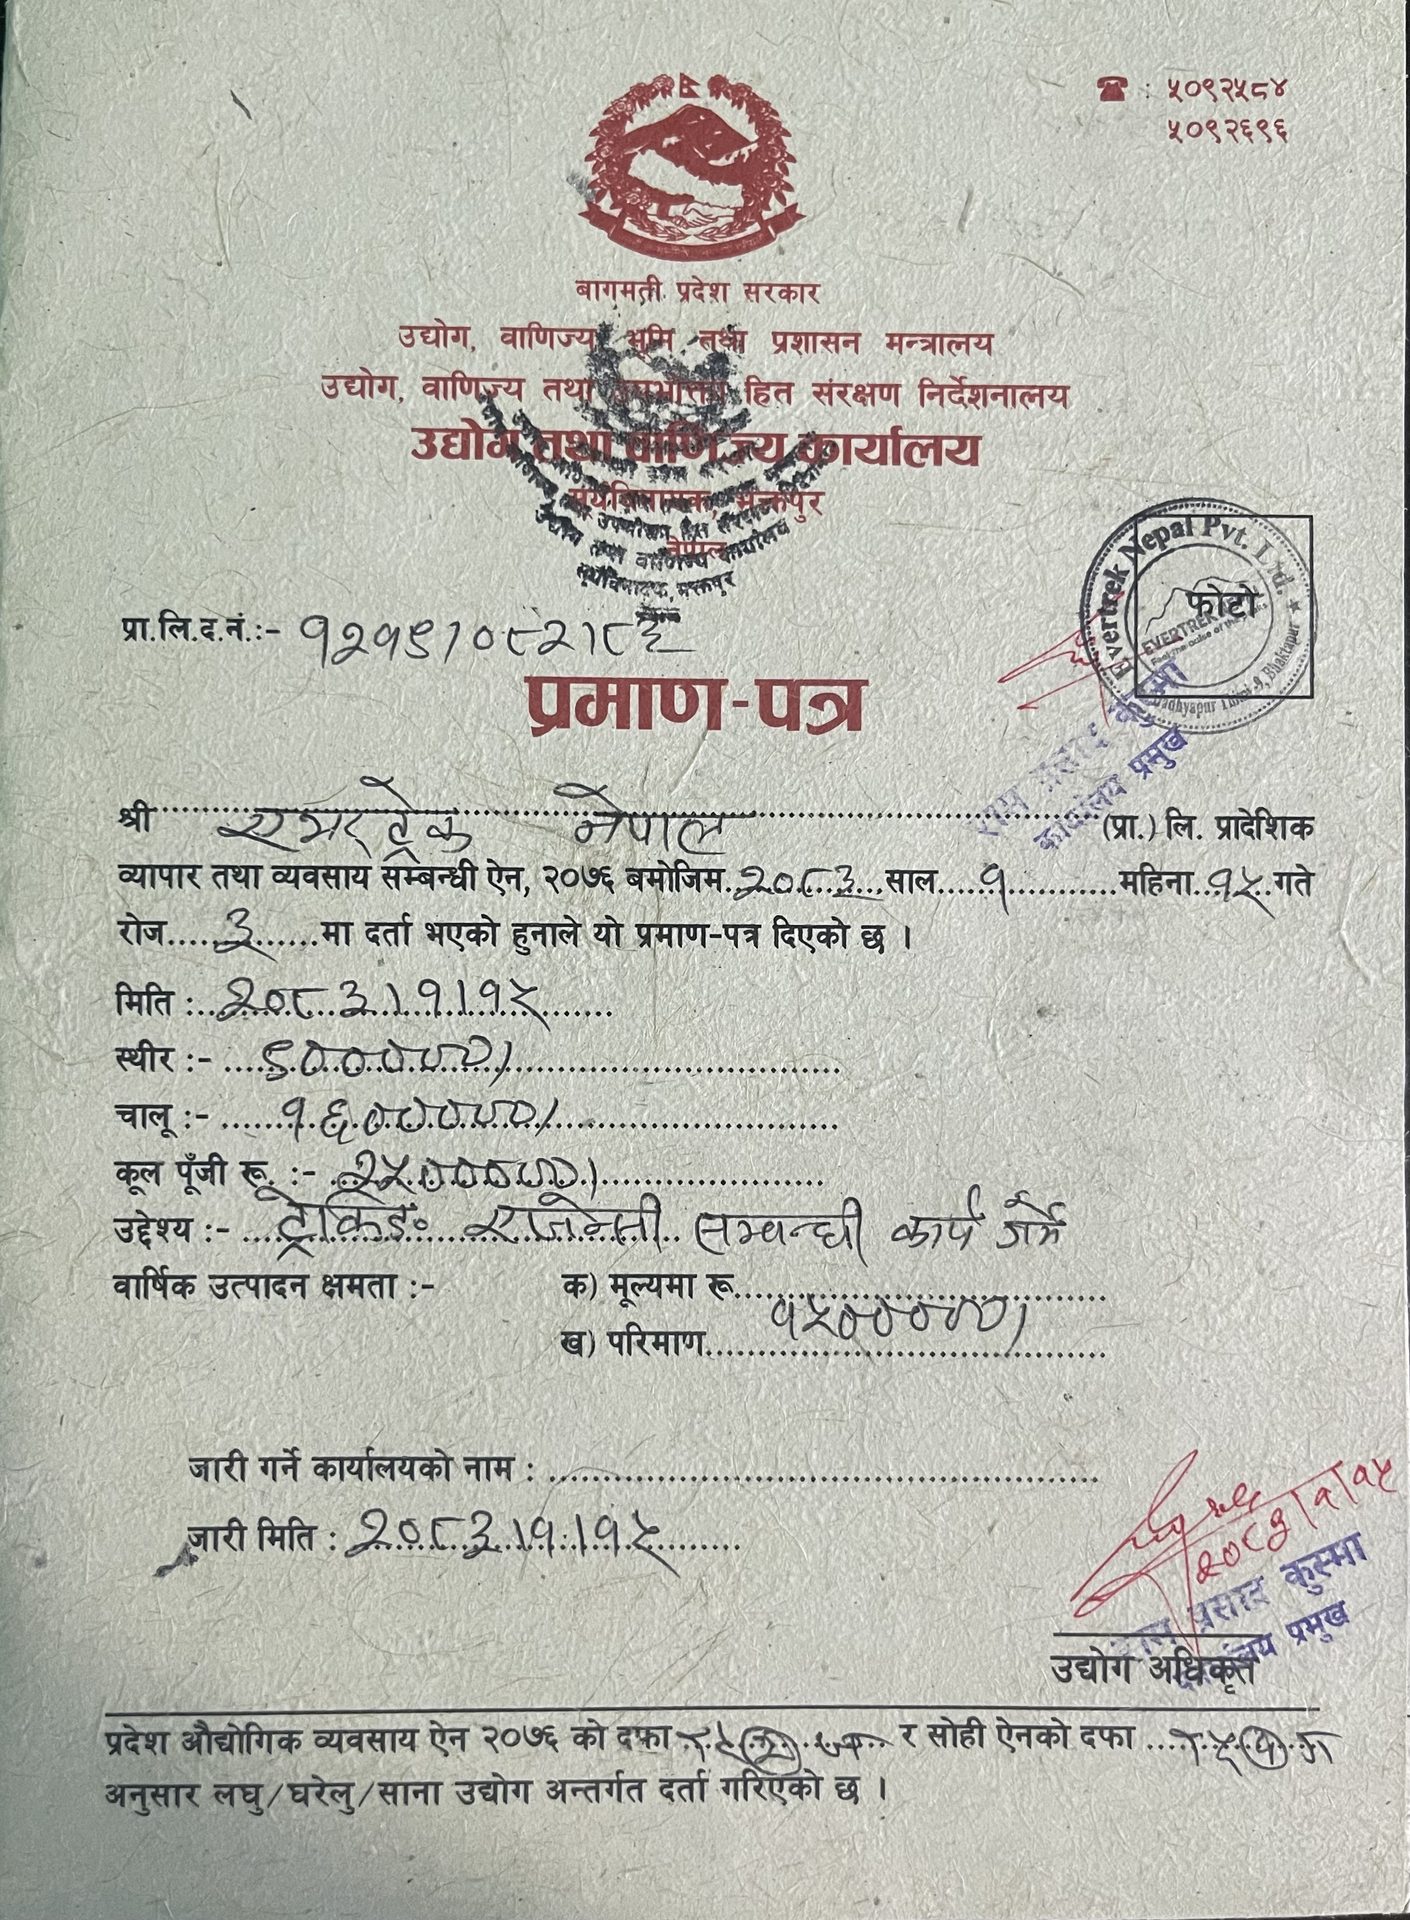 ☎ : ५०९२५८४
५०९२६९६
बागमती प्रदेश सरकार
उद्योग, वाणिज्य भूमि तथा प्रशासन मन्त्रालय
उद्योग, वाणिज्य तथा उपभोक्ता हित संरक्षण निर्देशनालय
उद्योग तथा वाणिज्य कार्यालय
सूर्यविनायक, भक्तपुर
नेपाल
उद्योग तथा वाणिज्य कार्यालय
सूर्यविनायक, भक्तपुर
Evertrek Nepal Pvt. Ltd.
फोटो
EVERTREK
Bhaktapur
प्रा.लि.द.नं.:- १२१९/०८२/८३
प्रमाण-पत्र
प्रसाद कुस्मा
कार्यालय प्रमुख
श्री एभरट्रेक नेपाल (प्रा.) लि. प्रादेशिक
व्यापार तथा व्यवसाय सम्बन्धी ऐन, २०७६ बमोजिम २०८३ साल १ महिना १५ गते
रोज ३ मा दर्ता भएको हुनाले यो प्रमाण-पत्र दिएको छ ।
मिति : २०८३।१।१५
स्थीर :- ९०००००/
चालू :- १६०००००/
कूल पूँजी रू. :- २५०००००/
उद्देश्य :- ट्रेकिङ एजेन्सी सम्बन्धी कार्य गर्ने
वार्षिक उत्पादन क्षमता :- क) मूल्यमा रू.
१५०००००/
ख) परिमाण
जारी गर्ने कार्यालयको नाम :
जारी मिति : २०८३।१।१५
२०८३।१।१५
प्रसाद कुस्मा
कार्यालय प्रमुख
उद्योग अधिकृत
प्रदेश औद्योगिक व्यवसाय ऐन २०७६ को दफा र सोही ऐनको दफा
अनुसार लघु/घरेलु/साना उद्योग अन्तर्गत दर्ता गरिएको छ ।